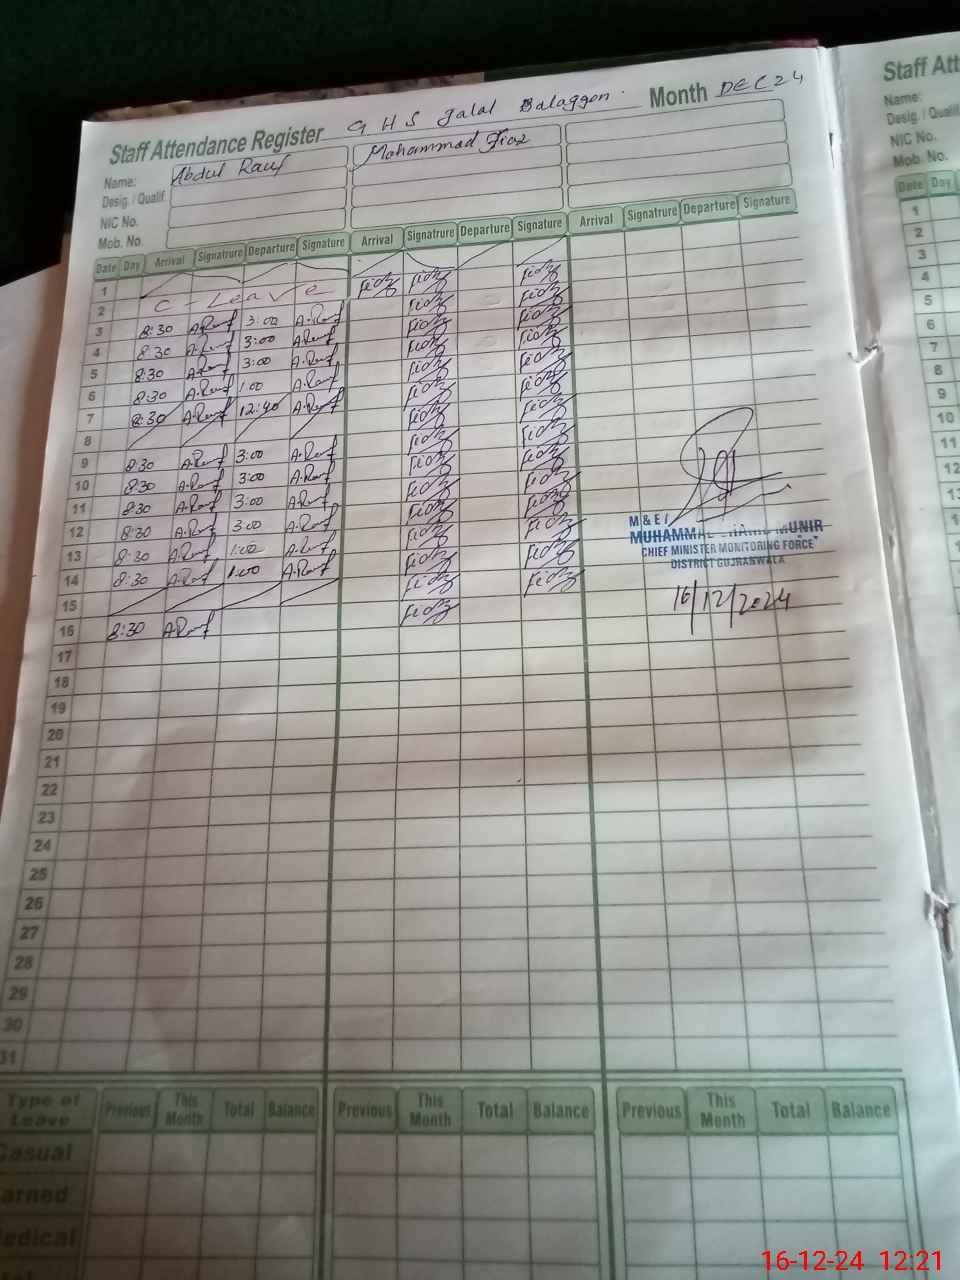 Staff Attendance Register G H S Jalal Balaggan. Month DEC 24
Name: Abdul Rauf Mohammad Fiaz
Desig. / Qualif.
NIC No.
Mob. No.
Date Day Arrival Signatrure Departure Signature Arrival Signatrure Departure Signature Arrival Signatrure Departure Signature
1
2 C - Leave Fiaz Fiaz Fiaz
3 8:30 A.Rauf 3:00 A.Rauf Fiaz Fiaz
4 8:30 A.Rauf 3:00 A.Rauf Fiaz Fiaz
5 8:30 A.Rauf 3:00 A.Rauf Fiaz Fiaz
6 8:30 A.Rauf 1:00 A.Rauf Fiaz Fiaz
7 8:30 A.Rauf 12:40 A.Rauf Fiaz Fiaz
8 Fiaz Fiaz
9 8:30 A.Rauf 3:00 A.Rauf Fiaz Fiaz
10 8:30 A.Rauf 3:00 A.Rauf Fiaz Fiaz
11 8:30 A.Rauf 3:00 A.Rauf Fiaz Fiaz
12 8:30 A.Rauf 3:00 A.Rauf Fiaz Fiaz
13 8:30 A.Rauf 1:00 A.Rauf Fiaz Fiaz
14 8:30 A.Rauf 1:00 A.Rauf Fiaz Fiaz
15
16 8:30 A.Rauf Fiaz
17
18
19
20
21
22
23
24
25
26
27
28
29
30
31
M & E
MUNIR
CHIEF MINISTER MONITORING FORCE
DISTRICT GUJRANWALA
16/12/2024
Type of Leave Previous This Month Total Balance Previous This Month Total Balance Previous This Month Total Balance
Casual
Earned
Medical
Staff Att
Name:
Desig. / Quali
NIC No.
Mob. No.
Date Day
1
2
3
4
5
6
7
8
9
10
11
12
16-12-24 12:21